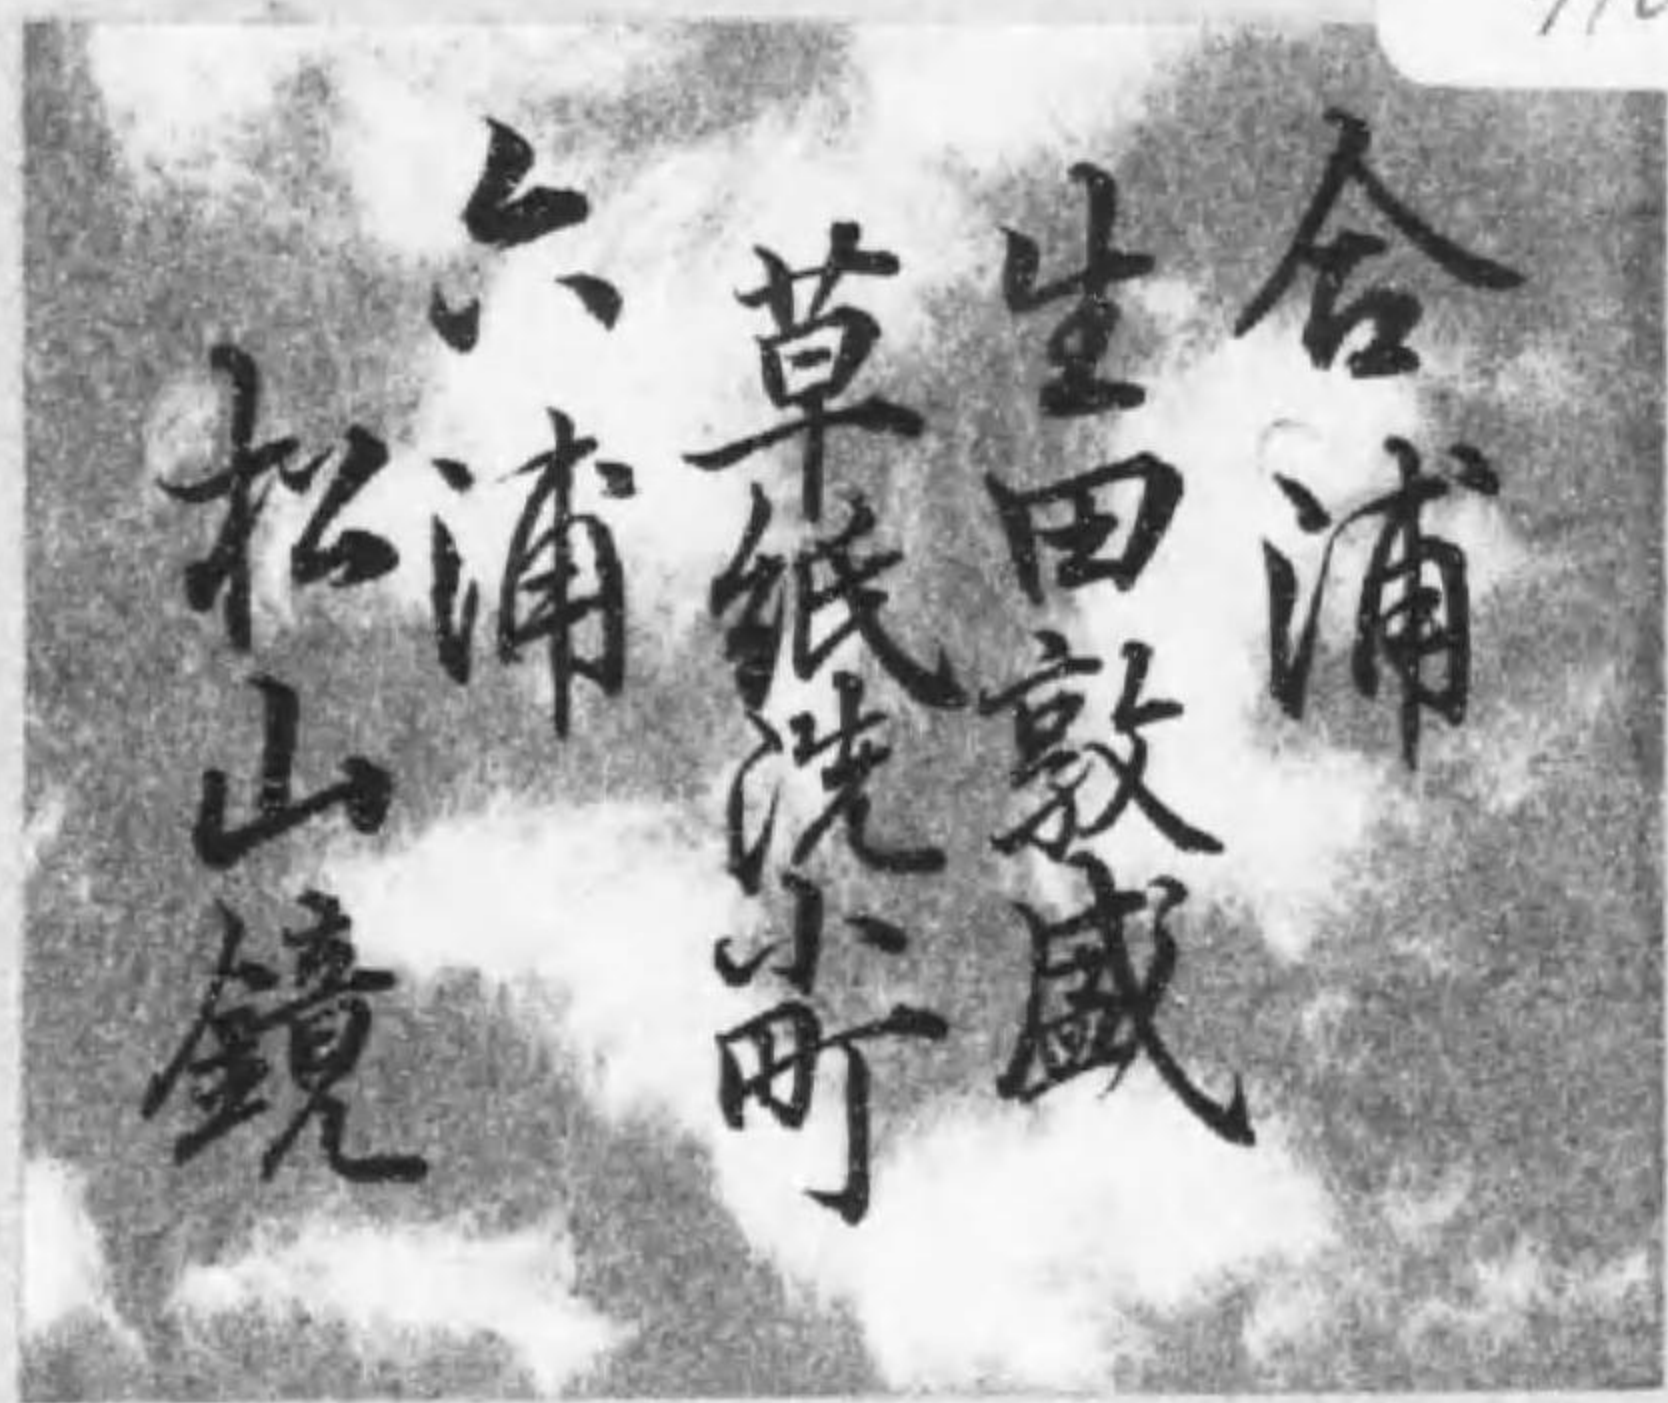 合浦
生田敦盛
草紙洗小町
六浦
松山鏡